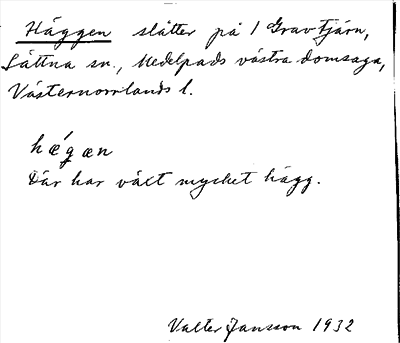 Häggen slåtter på 1 Gravtjärn,
Lättna sn., Medelpads västra domsaga,
Västernorrlands l.
hǽgæn
Där har växt mycket hägg.
Valter Jansson 1932